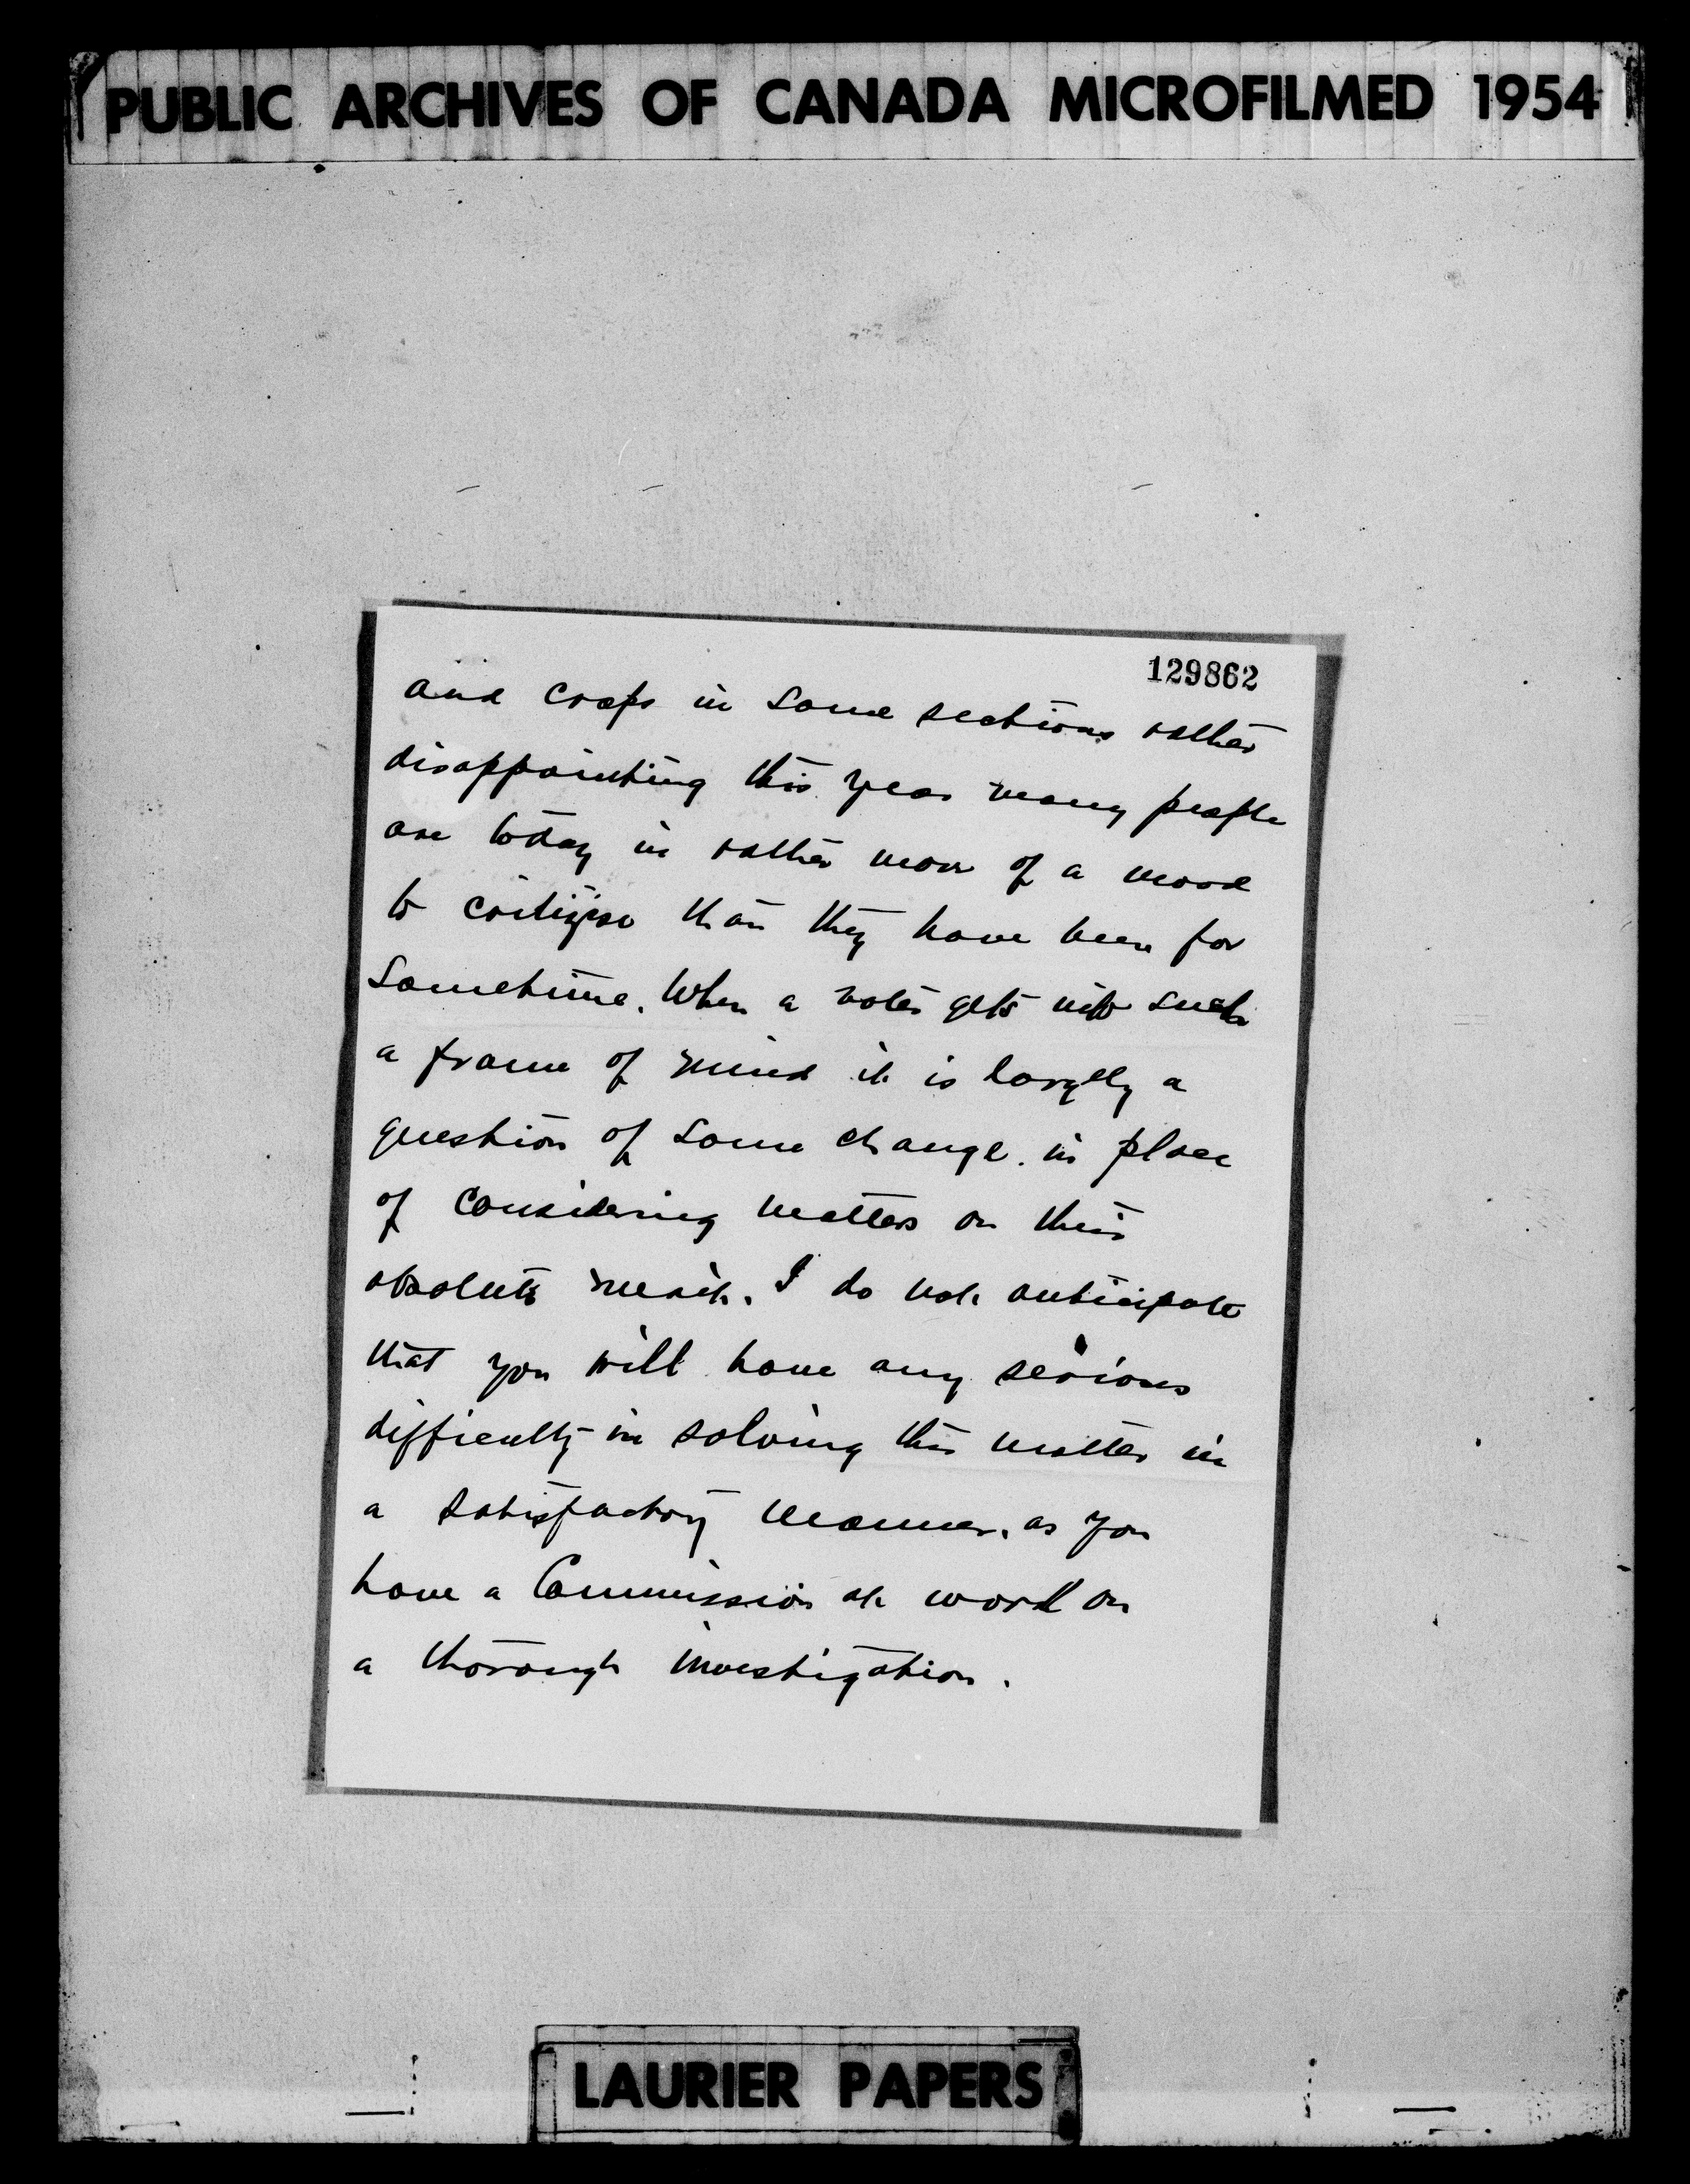 PUBLIC ARCHIVES OF CANADA MICROFILMED 1954
129862
and crops in some sections rather
disappointing this year many people
are today in rather more of a mood
to critizise than they have been for
sometime. When a voter gets into such
a frame of mind it is largely a
question of some change. in place
of considering matters on their
absolute merit. I do not anticipate
that you will have any serious
difficulty in solving this matter in
a satisfactory manner. as you
have a Commission at work on
a thorough investigation.
LAURIER PAPERS